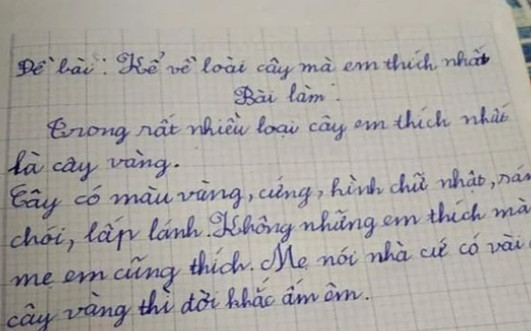 Đề bài: Kể về loài cây mà em thích nhất
Bài làm:
Trong rất nhiều loại cây em thích nhất
là cây vàng.
Cây có màu vàng, cứng, hình chữ nhật, sán
chói, lấp lánh. Không những em thích mà
mẹ em cũng thích. Mẹ nói nhà cứ có vài
cây vàng thì đời khắc ấm êm.